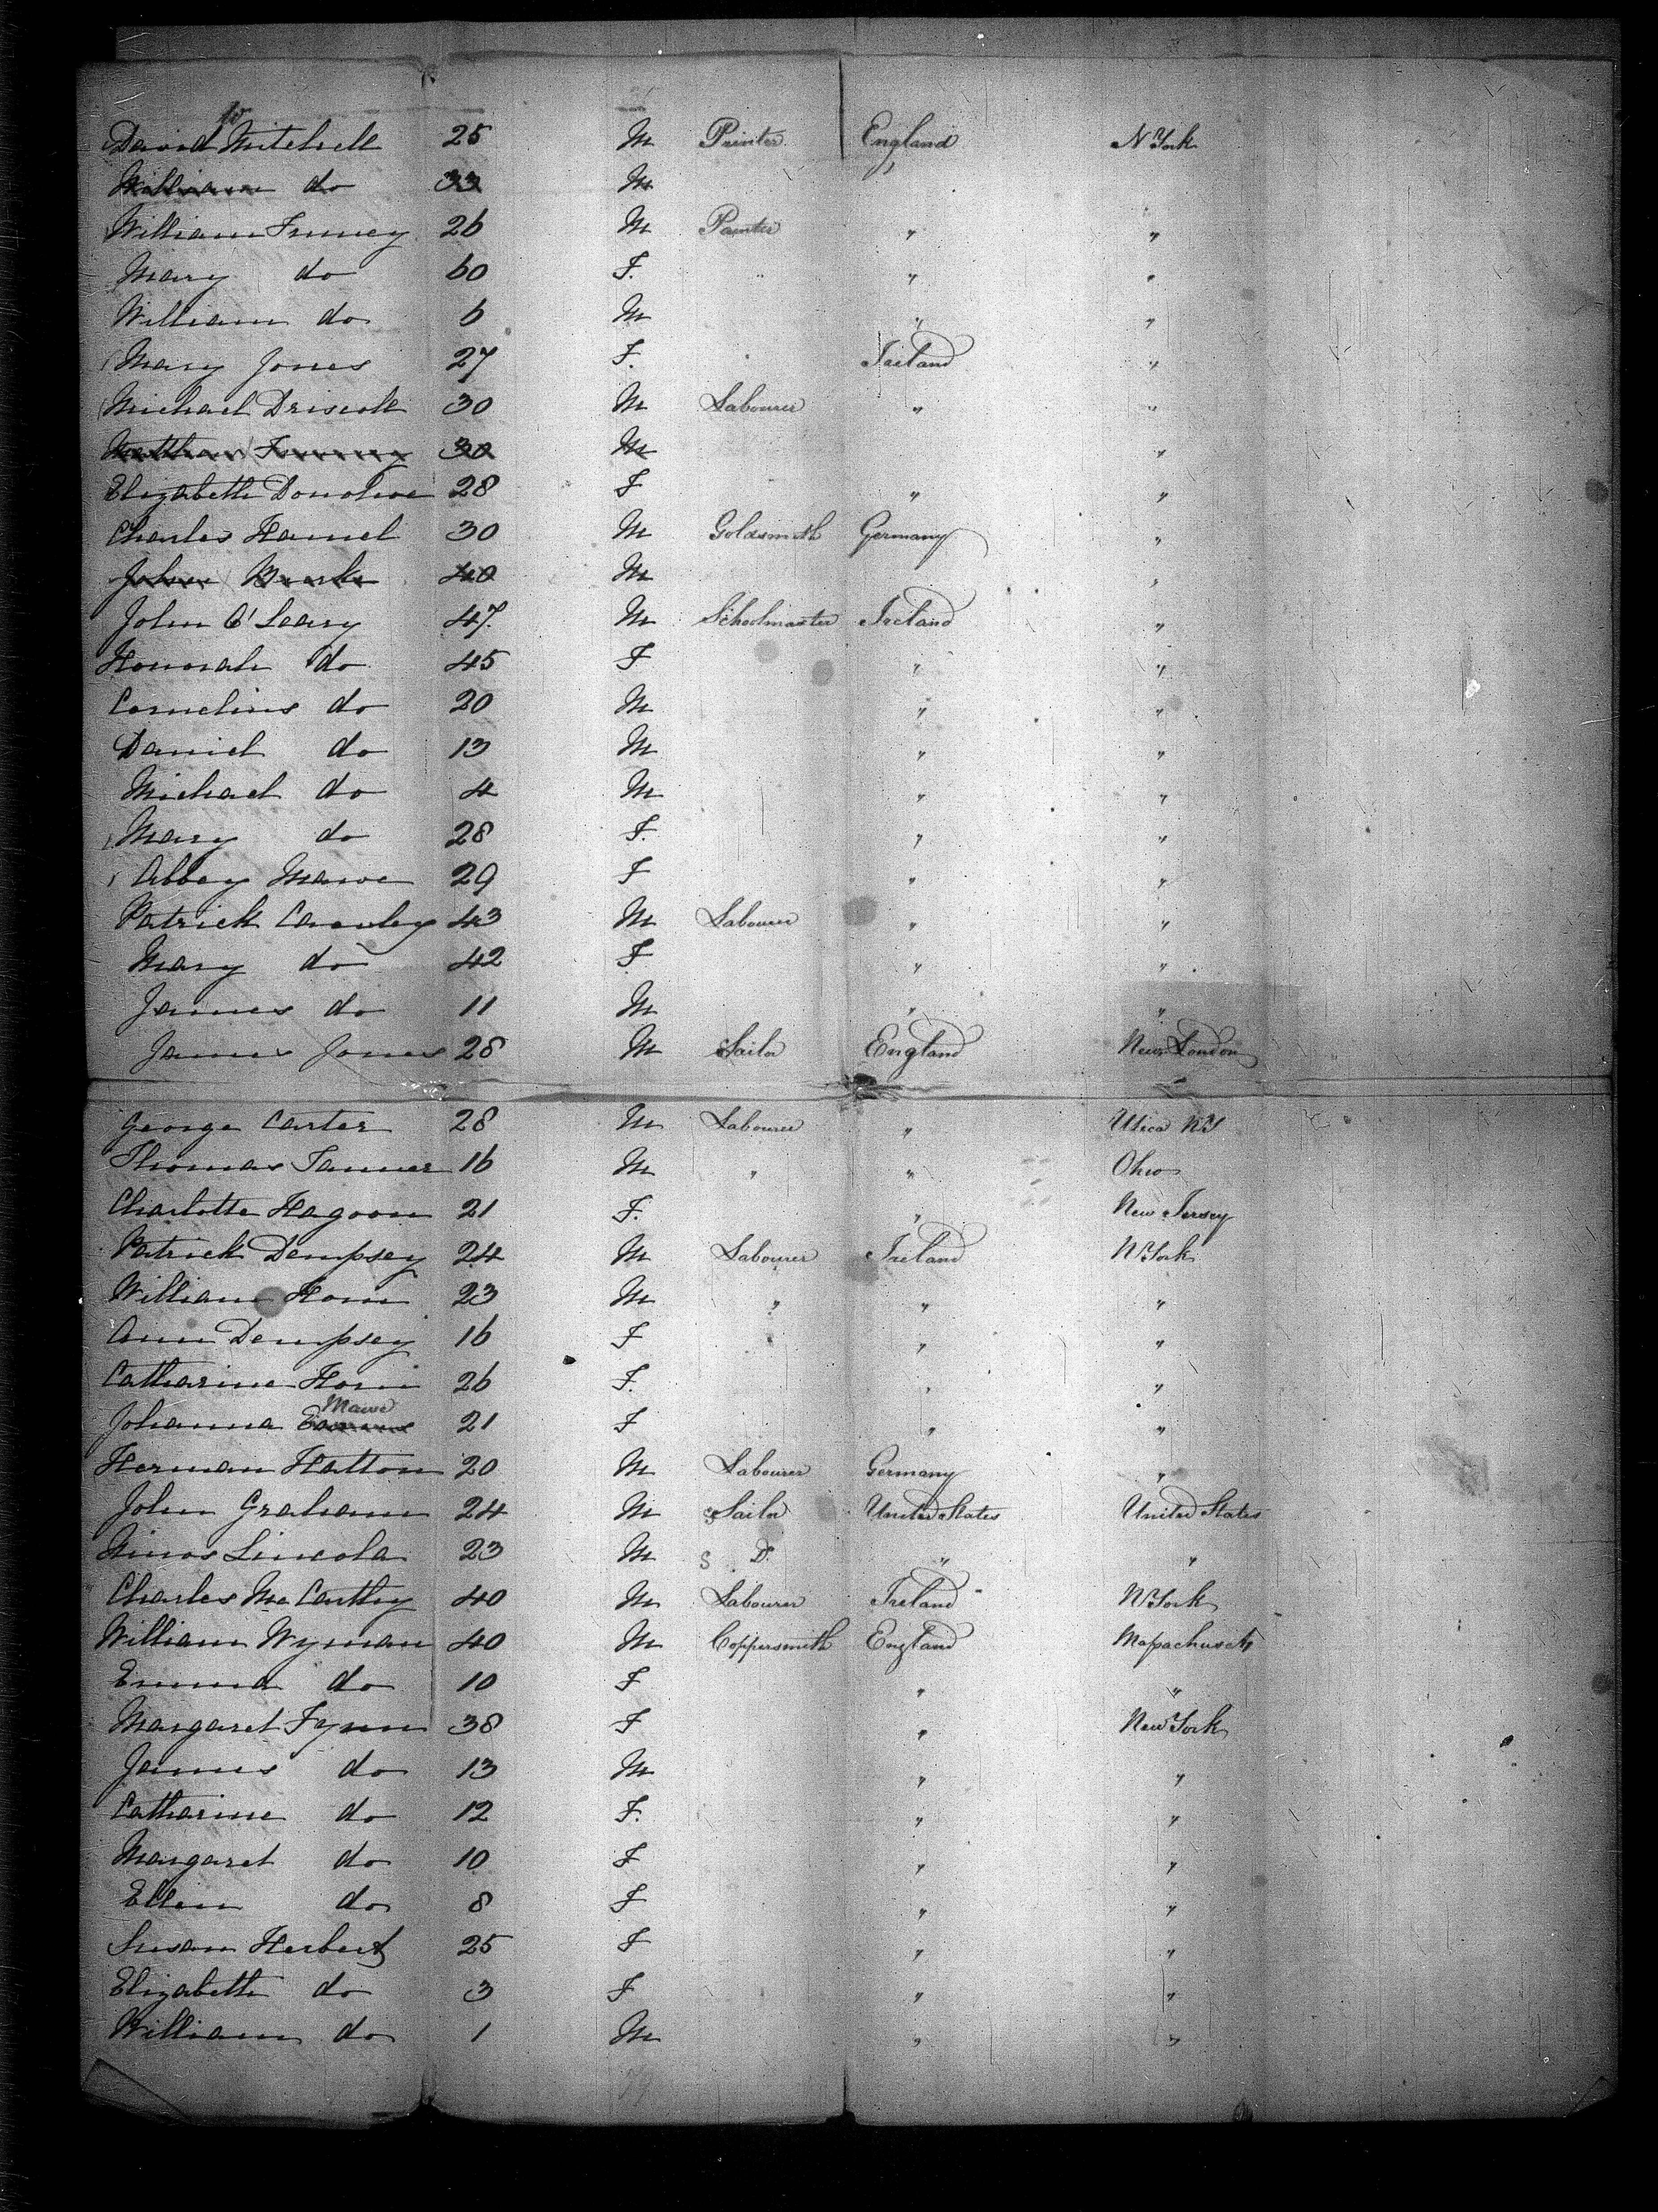 W
David Mitchell 25 M Printer England N York
William do 33 M
William Finney 26 M Painter " "
Mary do 60 F. " " "
William do 6 M " "
Mary Jones 27 F. Ireland "
Michael Driscoll 30 M Labourer " "
30 M "
Elizabeth Donohue 28 F " "
Charles Hamel 30 M Goldsmith Germany "
John Burke 40 M "
John O'Leary 47. M Schoolmaster Ireland "
Hannah do 45 F " "
Cornelius do 20 M " "
Daniel do 13 M " "
Michael do 4 M " "
Mary do 28 F. " "
Abbey Mawe 29 F " "
Patrick Cawley 43 M Labourer " "
Mary do 42 F " "
James do 11 M " "
James Jones 28 M Sailor England New London
George Carter 28 M Labourer " Utica NY
Thomas Tanner 16 M " " Ohio
Charlotte Hagoon 21 F. " New Jersey
Patrick Dempsey 24 M Labourer Ireland N York
William Horn 23 M " " "
Ann Dempsey 16 F " "
Catharine Horn 26 F. " "
Mawe
Johanna 21 F " "
Herman Hatton 20 M Labourer Germany "
John Graham 24 M Sailor United States United States
Lincoln 23 M S Do " "
Charles McCarthy 40 M Labourer Ireland N York
William Wyman 40 M Coppersmith England Massachusets
Emma do 10 F " "
Margaret Fynn 38 F " New York
James do 13 M " "
Catharine do 12 F. " "
Margaret do 10 F " "
Ellen do 8 F " "
Susan Herbert 25 F " "
Elizabeth do 3 F " "
William do 1 M " "